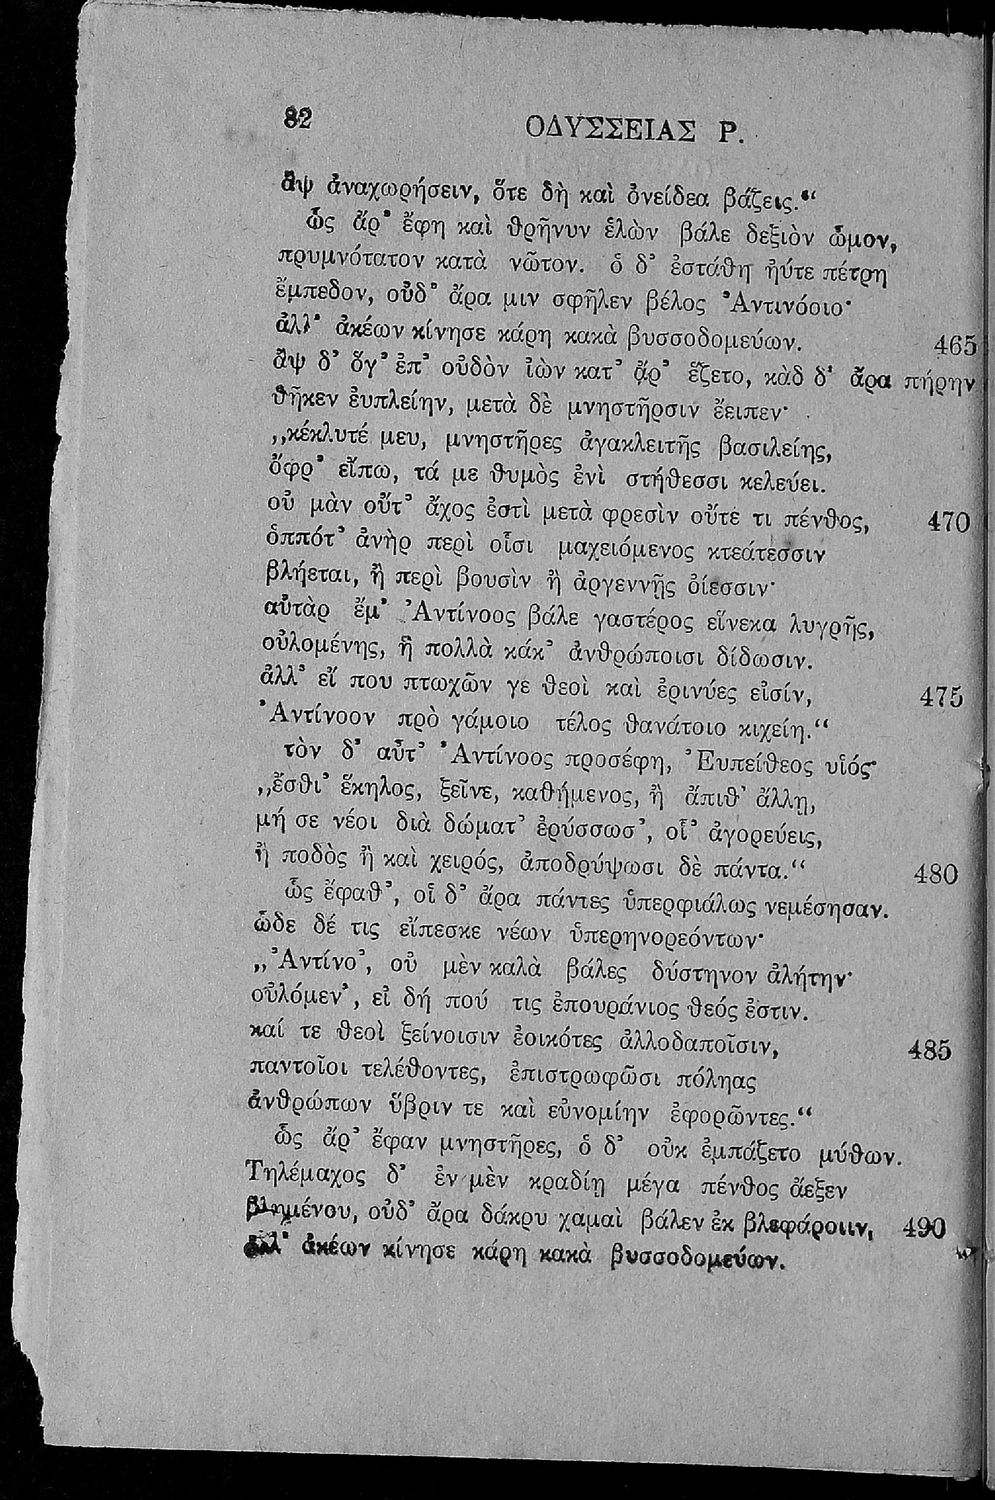 82 ΟΔΥΣΣΕΙΑΣ Ρ.
ἂψ ἀναχωρήσειν, ὅτε δὴ καὶ ὀνείδεα βάζεις.“
ὣς ἄρ᾽ ἔφη καὶ θρῆνυν ἑλὼν βάλε δεξιὸν ὦμον,
πρυμνότατον κατὰ νῶτον. ὁ δ᾽ ἐστάθη ἠύτε πέτρη
ἔμπεδον, οὐδ᾽ ἄρα μιν σφῆλεν βέλος Ἀντινόοιο·
ἀλλ᾽ ἀκέων κίνησε κάρη κακὰ βυσσοδομεύων. 465
ἂψ δ᾽ ὅγ᾽ ἐπ᾽ οὐδὸν ἰὼν κατ᾽ ἄρ᾽ ἕζετο, κὰδ δ᾽ ἄρα πήρην
θῆκεν ἐυπλείην, μετὰ δὲ μνηστῆρσιν ἔειπεν·
„κέκλυτέ μευ, μνηστῆρες ἀγακλειτῆς βασιλείης,
ὄφρ᾽ εἴπω, τά με θυμὸς ἐνὶ στήθεσσι κελεύει.
οὐ μὰν οὔτ᾽ ἄχος ἐστὶ μετὰ φρεσὶν οὔτέ τι πένθος, 470
ὁππότ᾽ ἀνὴρ περὶ οἷσι μαχειόμενος κτεάτεσσιν
βλήεται, ἢ περὶ βουσὶν ἢ ἀργεννῇς ὀίεσσιν·
αὐτὰρ ἔμ᾽ Ἀντίνοος βάλε γαστέρος εἵνεκα λυγρῆς,
οὐλομένης, ἣ πολλὰ κάκ᾽ ἀνθρώποισι δίδωσιν.
ἀλλ᾽ εἴ που πτωχῶν γε θεοὶ καὶ ἐρινύες εἰσίν, 475
Ἀντίνοον πρὸ γάμοιο τέλος θανάτοιο κιχείη.“
τὸν δ᾽ αὖτ᾽ Ἀντίνοος προσέφη, Ἐυπείθεος υἱός·
„ἔσθι᾽ ἕκηλος, ξεῖνε, καθήμενος, ἢ ἄπιθ᾽ ἄλλῃ,
μή σε νέοι διὰ δώματ᾽ ἐρύσσωσ᾽, οἷ᾽ ἀγορεύεις,
ἢ ποδὸς ἢ καὶ χειρός, ἀποδρύψωσι δὲ πάντα.“ 480
ὣς ἔφαθ᾽, οἱ δ᾽ ἄρα πάντες ὑπερφιάλως νεμέσησαν.
ὧδε δέ τις εἴπεσκε νέων ὑπερηνορεόντων·
„Ἀντίνο᾽, οὐ μὲν καλὰ βάλες δύστηνον ἀλήτην·
οὐλόμεν᾽, εἰ δή πού τις ἐπουράνιος θεός ἐστιν.
καί τε θεοὶ ξείνοισιν ἐοικότες ἀλλοδαποῖσιν, 485
παντοῖοι τελέθοντες, ἐπιστρωφῶσι πόληας
ἀνθρώπων ὕβριν τε καὶ εὐνομίην ἐφορῶντες.“
ὣς ἄρ᾽ ἔφαν μνηστῆρες, ὁ δ᾽ οὐκ ἐμπάζετο μύθων.
Τηλέμαχος δ᾽ ἐν μὲν κραδίῃ μέγα πένθος ἄεξεν
βλημένου, οὐδ᾽ ἄρα δάκρυ χαμαὶ βάλεν ἐκ βλεφάροιιν, 490
ἀλλ᾽ ἀκέων κίνησε κάρη κακὰ βυσσοδομεύων.